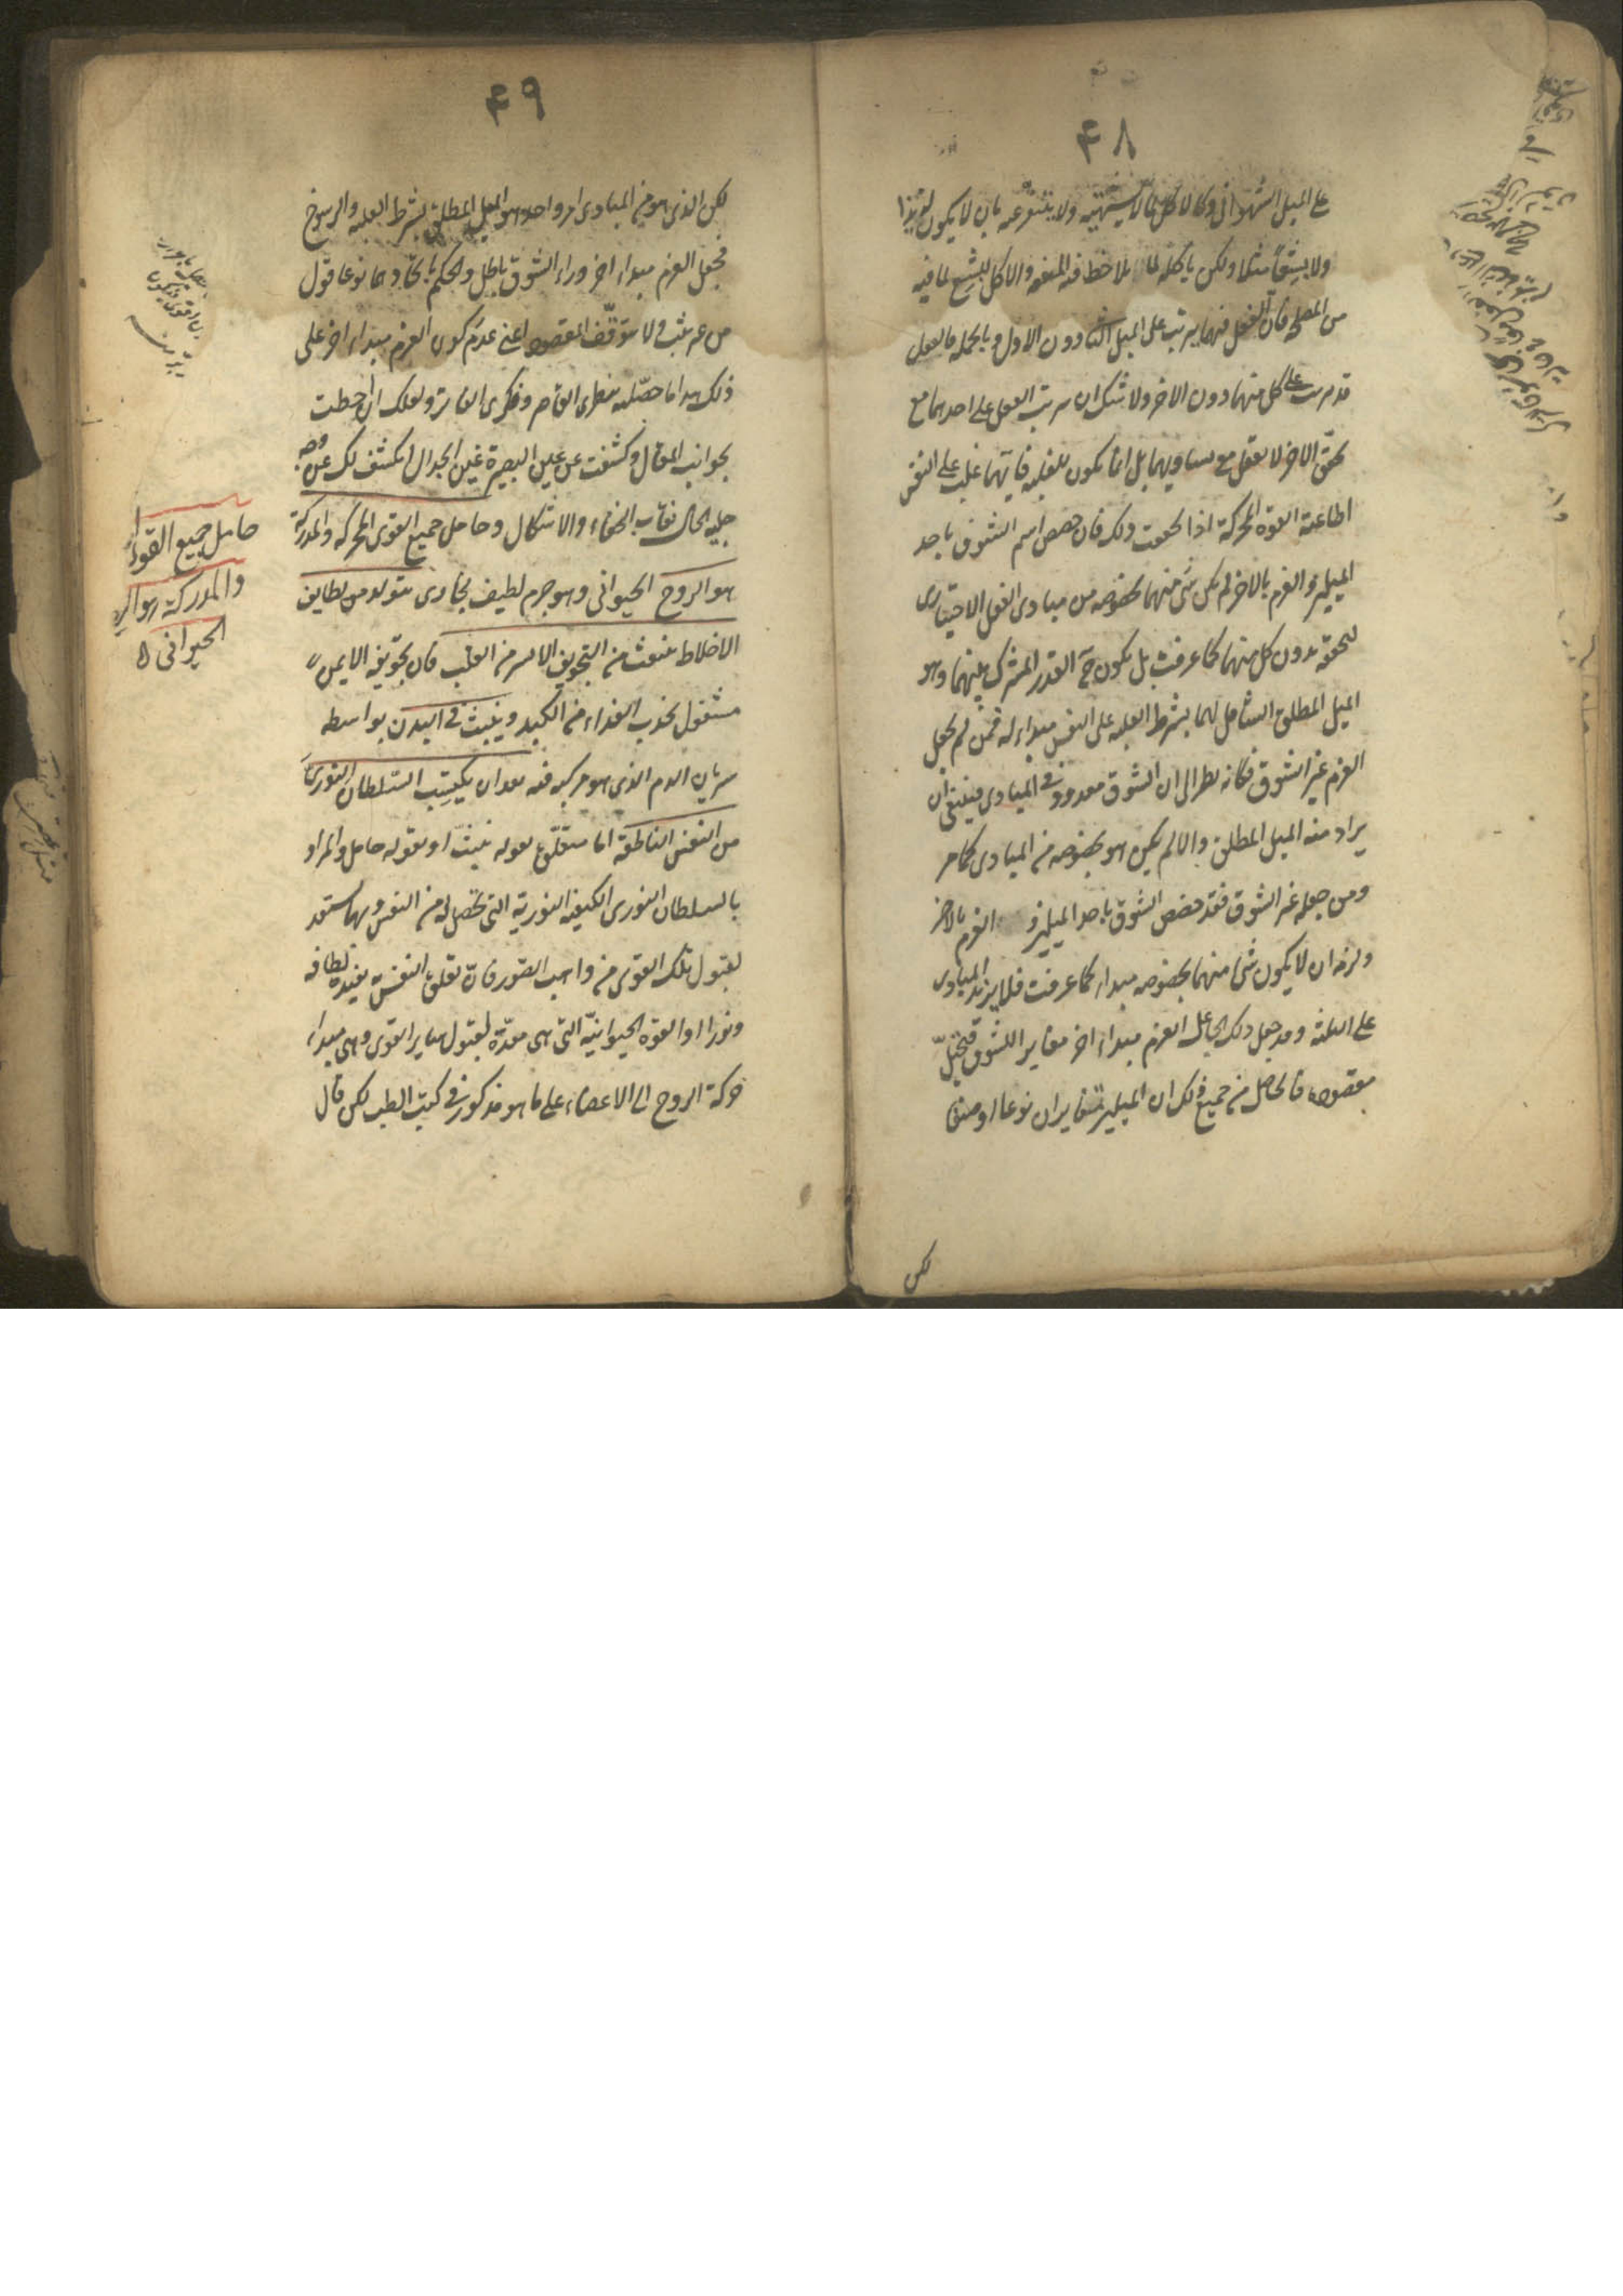 ۴۸
على الميل الشهوانى وكالاكل لما لا يشتهيه ولا يتنفر عنه بان لا يكون لذيذا
ولا بشيعا مثلا ولكن ياكله لما يلاحظ فيه المنفعة والاكل البشع لما فيه
من المصلحة فان الفعل فيهما يترتب على الميل الثانى دون الاول وبالجملة فالفعل
قد يترتب على كل منهما دون الاخر ولا شك ان ترتب الفعل على احدهما مع
تحقق الاخر لا يعقل مع تساويهما بل انما يكون بالغلبة فايهما غلب على النفس
اطاعته القوة المحركة اذا تحققت ذلك فان خصص اسم الشوق باحد
الميلين والعزم بالاخر لم يكن شئ منهما بخصوصه من مبادى الفعل الاختيارى
لتحققه بدون كل منهما كما عرفت بل يكون ح القدر المشترك بينهما وهو
الميل المطلق الشامل لهما بشرط الغلبة على النفس مبداء له فمن لم يجعل
العزم غير الشوق فكانه نظر الى ان الشوق معدود فى المبادى فينبغى ان
يراد منه الميل المطلق والا لم يكن هو بخصوصه من المبادى كما مر
ومن جعله غير الشوق فقد خصص الشوق باحد الميلين و العزم بالاخر
ولزمه ان لا يكون شئ منهما بخصوصه مبداء كما عرفت فلا يزيد المبادى
على الثلثة وقد جعل ذلك الجاعل العزم مبداء اخر مغايرا للشوق فيختل
مقصوده فالحاصل من جميع ذلك ان الميلين متغايران نوعا او صنفا
لكن
۴۹
لكن الذى هو من المبادى امر واحد هو الميل المطلق بشرط الغلبة والرسوخ
فجعل العزم مبداء اخر وراء الشوق باطل والحكم باتحادهما نوعا قول
من غير ثبت ولا يتوقف المقصود اعنى عدم كون العزم مبداء اخر على
ذلك هذا ما حصله نظرى القاصر وفكرى الفاتر ولعلك ان احطت
بجوانب المقال وكشفت عن عين البصيرة غين الجدال انكشف لك عن وجه
جلية الحال نقاب الخفاء والاشكال وحامل جميع القوى المحركة والمدركة
هو الروح الحيوانى وهو جرم لطيف بخارى يتولد من لطايف
الاخلاط ينبعث من التجويف الايسر من القلب فان تجويفه الايمن
مشغول بجذب الغذاء من الكبد وينبث فى البدن بواسطة
سريان الدم الذى هو مركبه فيه بعد ان يكتسب السلطان النورى
من النفس الناطقة اما متعلق بقوله ينبث او بقوله حامل والمراد
بالسلطان النورى الكيفية النورية التى تحصل له من النفس وبها يستعد
لقبول تلك القوى من واهب الصور فان تعلق النفس يفيده لطافة
ونورا او القوة الحيوانية التى هى معدة لقبول ساير القوى وهى مبداء
حركة الروح الى الاعضاء على ما هو مذكور فى كتب الطب لكن قال
حامل جميع القوى
والمدركة هو الر
الحيوانى